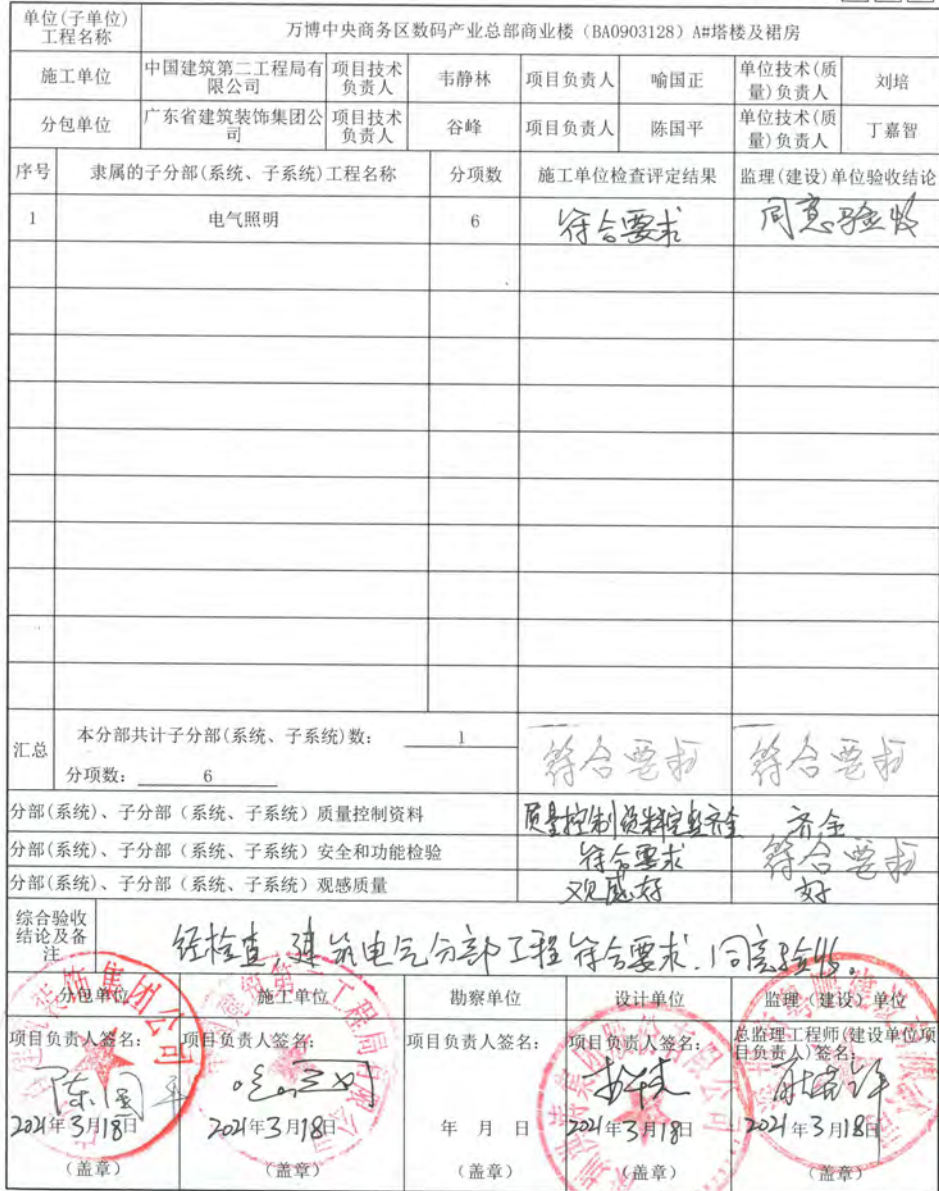 单位(子单位)
工程名称
万博中央商务区数码产业总部商业楼（BA0903128）A#塔楼及裙房
施工单位
中国建筑第二工程局有
限公司
项目技术
负责人
韦静林
项目负责人
喻国正
单位技术(质
量)负责人
刘培
分包单位
广东省建筑装饰集团公
司
项目技术
负责人
谷峰
项目负责人
陈国平
单位技术(质
量)负责人
丁嘉智
序号
隶属的子分部(系统、子系统)工程名称
分项数
施工单位检查评定结果
监理(建设)单位验收结论
1
电气照明
6
符合要求
同意验收
汇总
本分部共计子分部(系统、子系统)数：
1
分项数：
6
符合要求
符合要求
分部(系统)、子分部（系统、子系统）质量控制资料
质量控制资料完整齐全
齐全
分部(系统)、子分部（系统、子系统）安全和功能检验
符合要求
符合要求
分部(系统)、子分部（系统、子系统）观感质量
观感好
好
综合验收
结论及备
注
经检查,建筑电气分部工程符合要求.同意验收。
分包单位
施工单位
勘察单位
设计单位
监理（建设）单位
项目负责人签名：
项目负责人签名：
项目负责人签名：
项目负责人签名：
总监理工程师(建设单位项
目负责人)签名：
陈国平
2021年3月18日
2021年3月18日
年 月 日
2021年3月18日
2021年3月18日
（盖章）
（盖章）
（盖章）
（盖章）
（盖章）